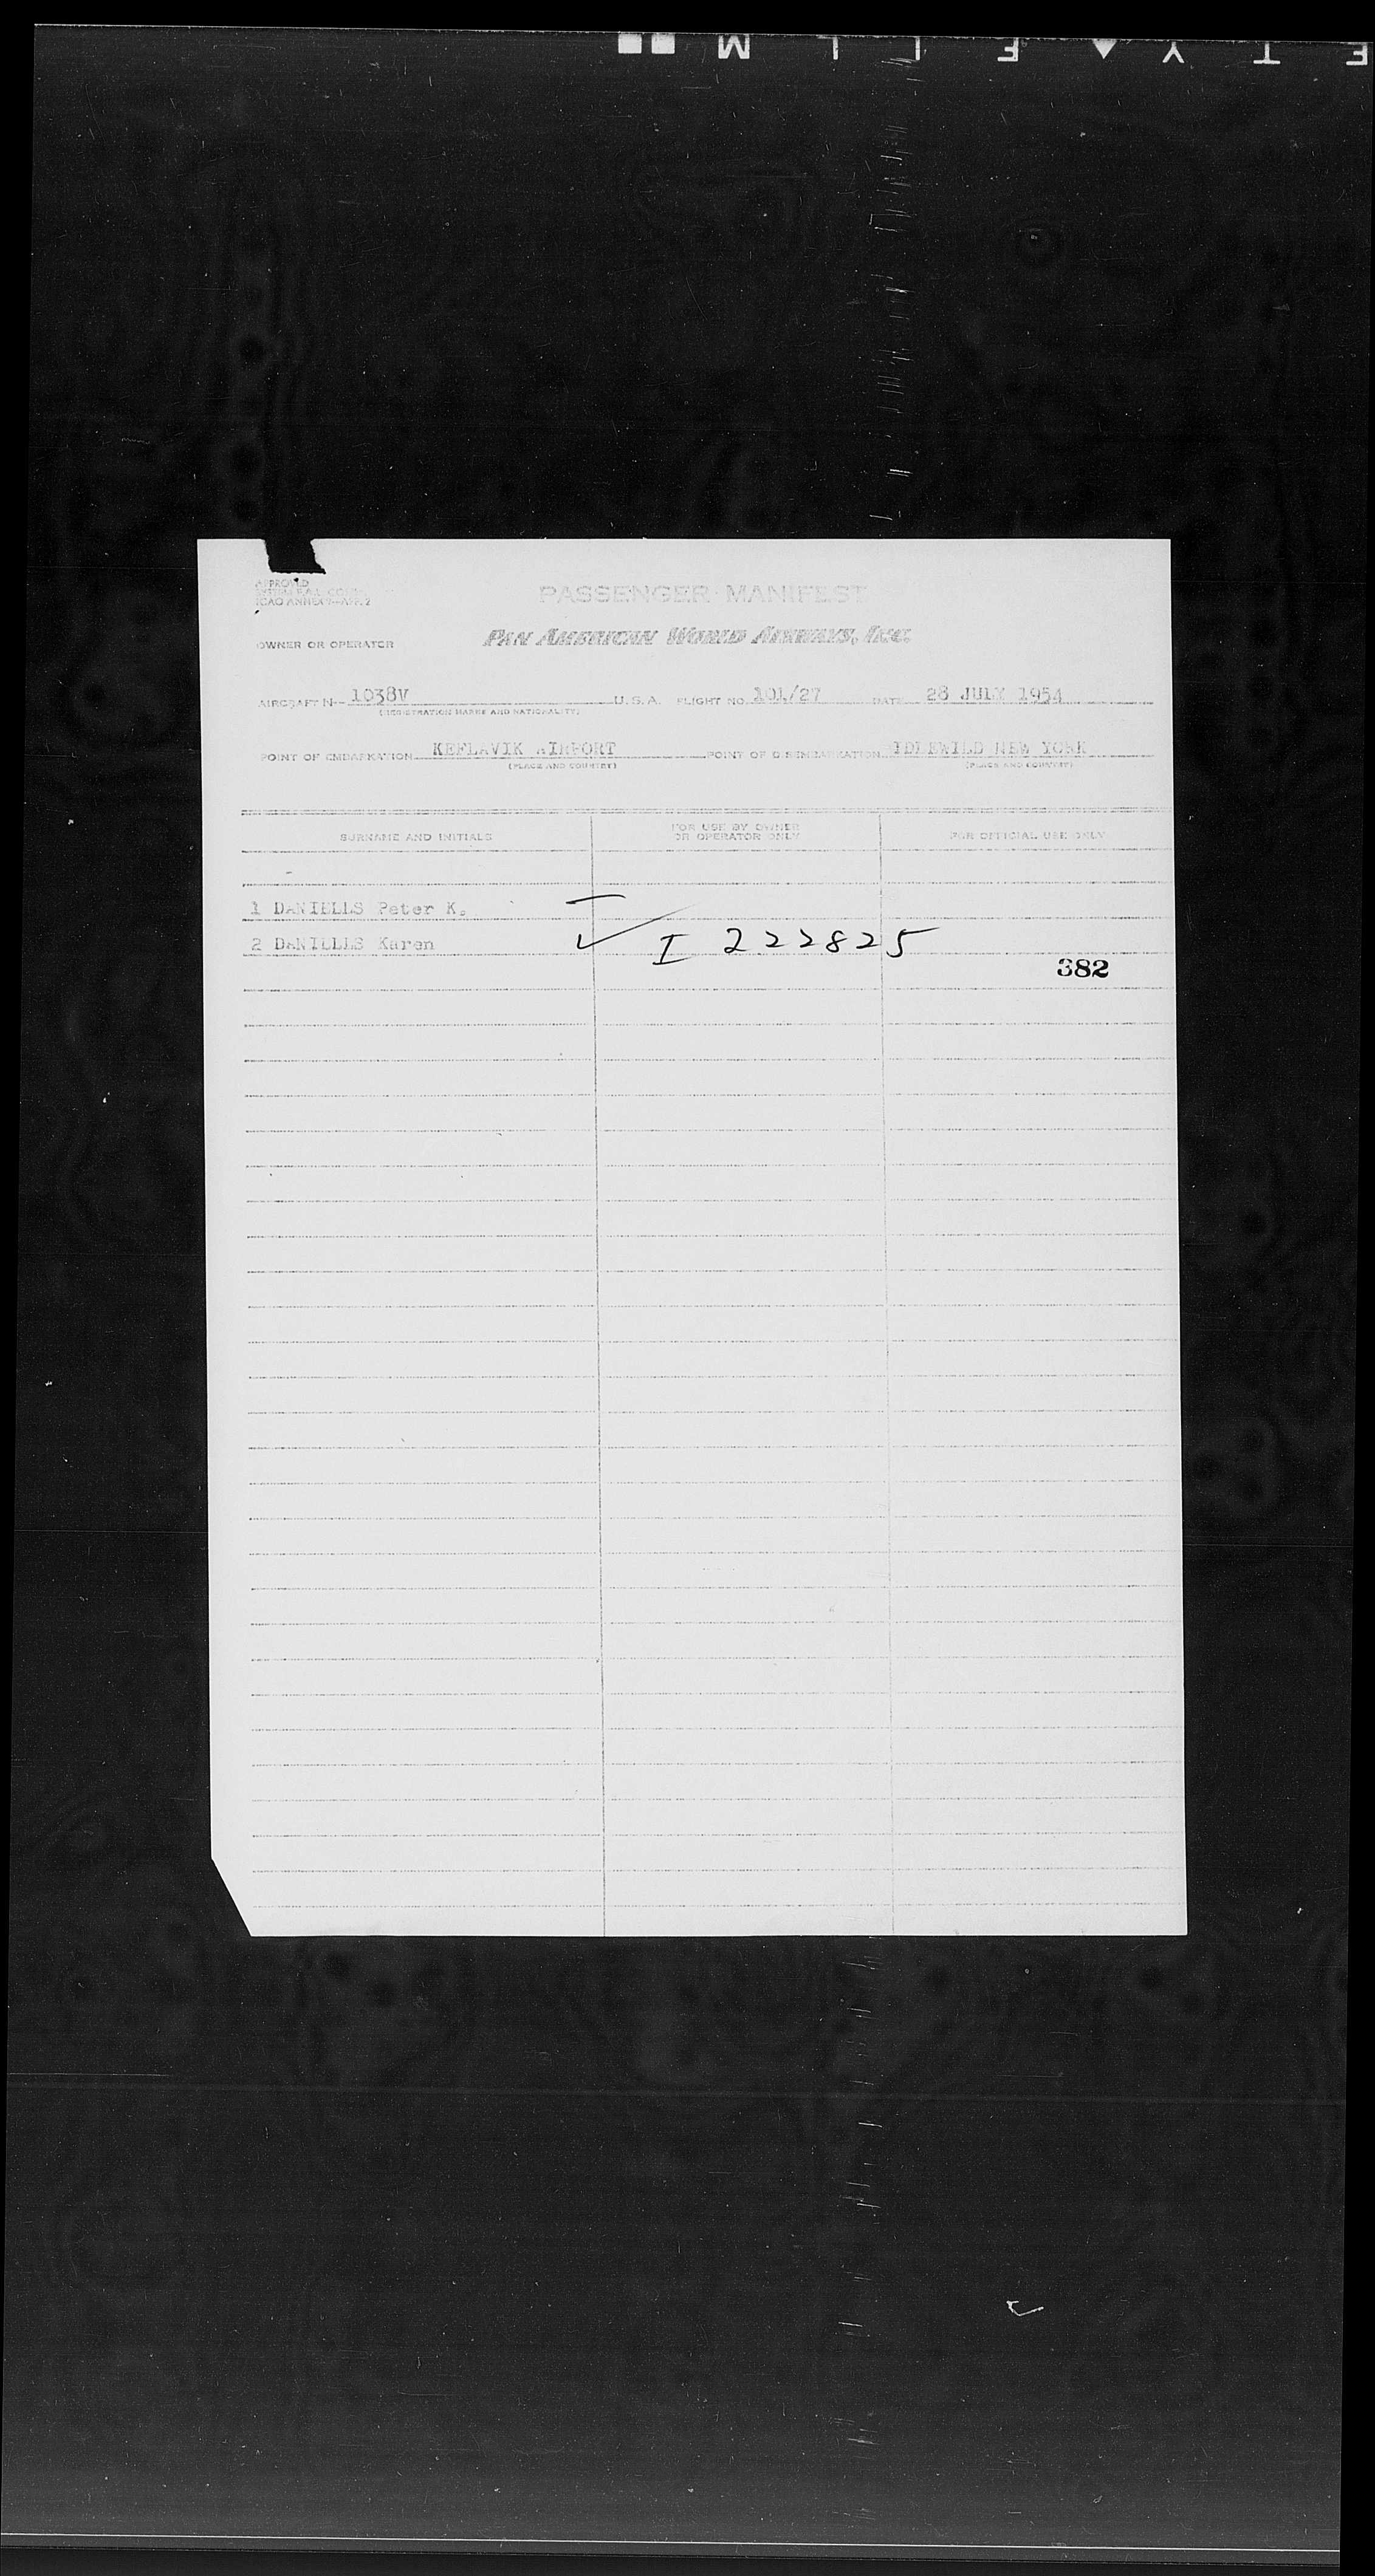 APPROVED
ICAO ANNEX 9—APP. 2
PASSENGER MANIFEST
OWNER OR OPERATOR PAN AMERICAN WORLD AIRWAYS, INC.
AIRCRAFT N-- 1038V U.S.A. FLIGHT NO. 101/27 DATE 28 JULY 1954
(REGISTRATION MARKS AND NATIONALITY)
POINT OF EMBARKATION KEFLAVIK AIRPORT POINT OF DISEMBARKATION IDLEWILD NEW YORK
(PLACE AND COUNTRY) (PLACE AND COUNTRY)
SURNAME AND INITIALS FOR USE BY OWNER OR OPERATOR ONLY FOR OFFICIAL USE ONLY
1 DANIELLS Peter K.
2 DANIELLS Karen ✓ I 222825
382